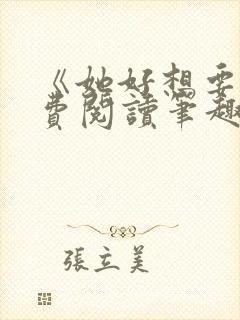 《她好想要
費閱讀筆趣
張立美